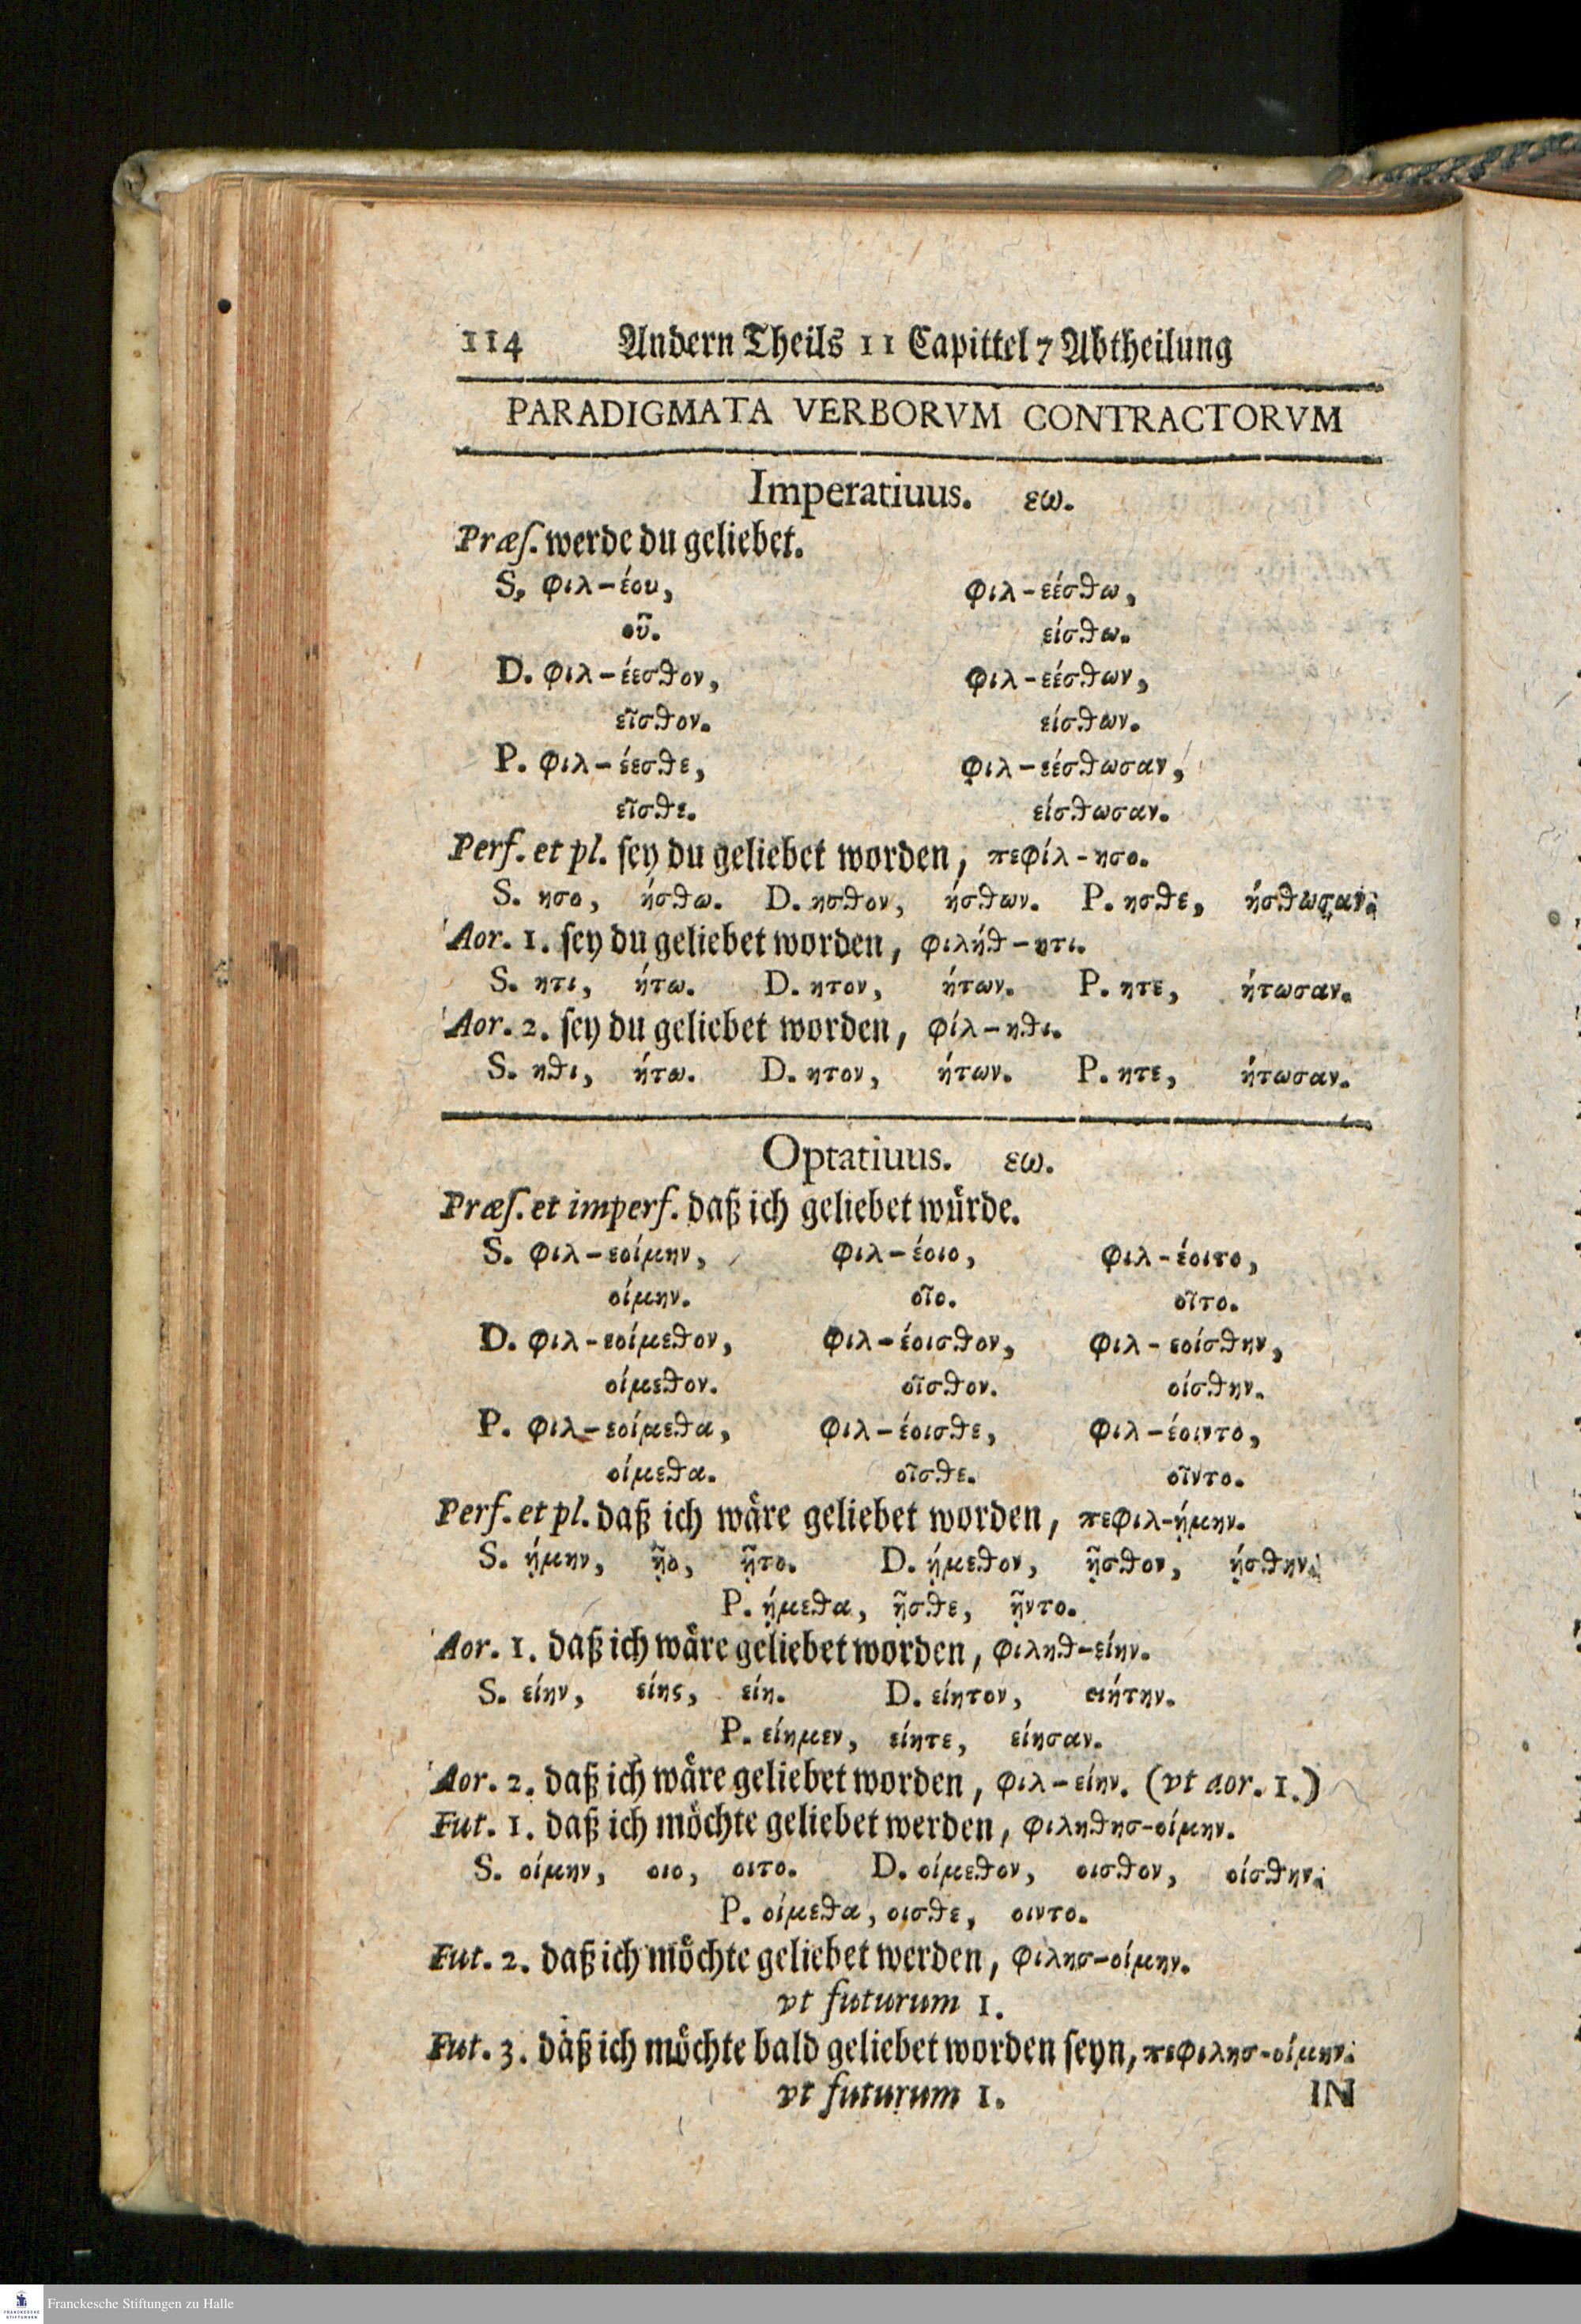 114 Andern Theils 11 Capittel 7 Abtheilung
PARADIGMATA VERBORVM CONTRACTORVM
Imperatiuus. εω.
Præſ. werde du geliebet.
S. φιλ-έου, φιλ-εέσθω,
οῦ. είσθω.
D. φιλ-έεσθον, φιλ-εέσθων,
εῖσθον. είσθων.
P. φιλ-έεσθε, φιλ-εέσθωσαν,
εῖσθε. είσθωσαν.
Perf. et pl. ſey du geliebet worden, πεφίλ-ησο.
S. ησο, ήσθω. D. ησθον, ήσθων. P. ησθε, ήσθωσαν.
Aor. 1. ſey du geliebet worden, φιλήθ-ητι.
S. ητι, ήτω. D. ητον, ήτων. P. ητε, ήτωσαν.
Aor. 2. ſey du geliebet worden, φίλ-ηθι.
S. ηθι, ήτω. D. ητον, ήτων. P. ητε, ήτωσαν.
Optatiuus. εω.
Præſ. et imperf. daß ich geliebet wuͤrde.
S. φιλ-εοίμην, φιλ-έοιο, φιλ-έοιτο,
οίμην. οῖο. οῖτο.
D. φιλ-εοίμεθον, φιλ-έοισθον, φιλ-εοίσθην,
οίμεθον. οῖσθον. οίσθην.
P. φιλ-εοίμεθα, φιλ-έοισθε, φιλ-έοιντο,
οίμεθα. οῖσθε. οῖντο.
Perf. et pl. daß ich waͤre geliebet worden, πεφιλ-ῄμην.
S. ῄμην, ῇο, ῇτο. D. ῄμεθον, ῇσθον, ῄσθην.
P. ῄμεθα, ῇσθε, ῇντο.
Aor. 1. daß ich waͤre geliebet worden, φιληθ-είην.
S. είην, είης, είη. D. είητον, ειήτην.
P. είημεν, είητε, είησαν.
Aor. 2. daß ich waͤre geliebet worden, φιλ-είην. (vt aor. 1.)
Fut. 1. daß ich moͤchte geliebet werden, φιληθησ-οίμην.
S. οίμην, οιο, οιτο. D. οίμεθον, οισθον, οίσθην.
P. οίμεθα, οισθε, οιντο.
Fut. 2. daß ich moͤchte geliebet werden, φιλησ-οίμην.
vt futurum 1.
Fut. 3. daß ich moͤchte bald geliebet worden ſeyn, πεφιλησ-οίμην.
vt futurum 1. IN
FRANCKESCHE
STIFTUNGEN
Franckesche Stiftungen zu Halle